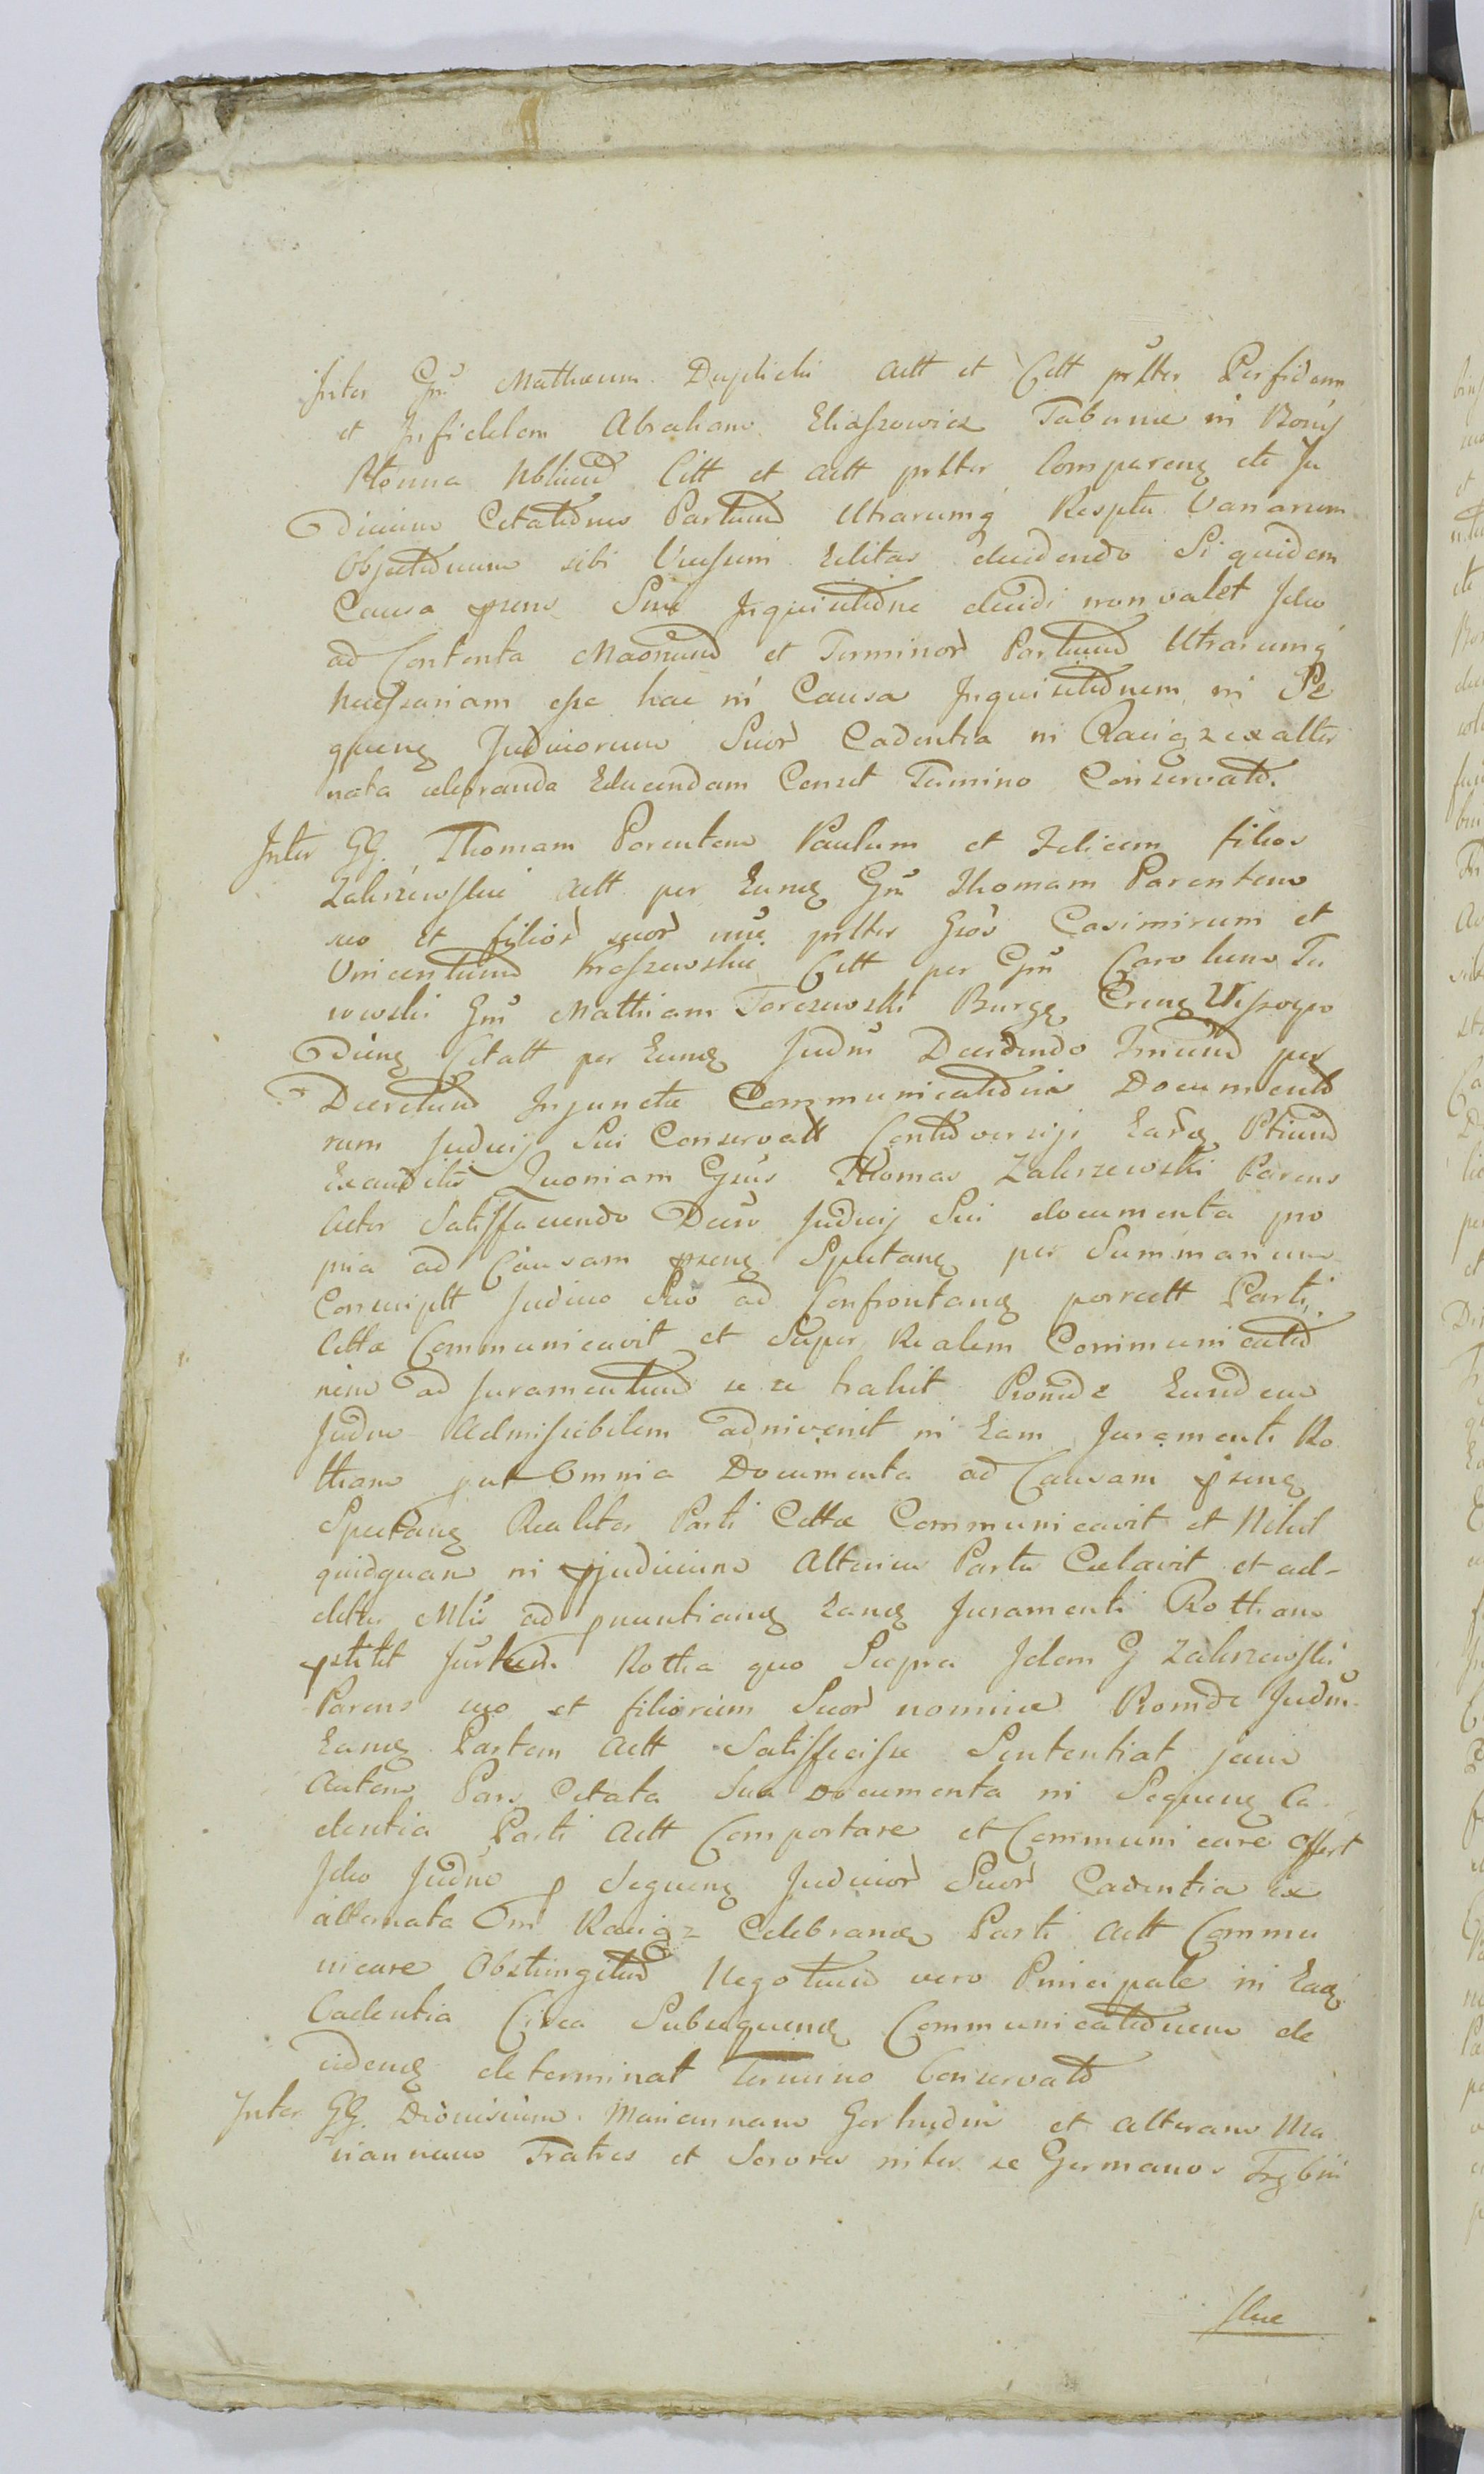 Inter Gm Mathæum Duplicki Actt et Citt prltter Perfidum
et Infidelem Abraham Eliaszowicz Tabernæ in Bonis
Citt et Actt prltter Comparens etc Ju
dicium Citationes Partium Utrarumq Respttu Variarum
Objectionum sibi Vicissim Editas decidendo Siquidem
Causa præns Sine Inquisitione decidi non valet Ideo
ad Contenta et Terminor Partium Utrarumq
necessariam esse hac in Causa Inquisitionem in Se
quens Judiciorum Suor Cadentia in Raciąz ex alter
nata celebranda Educendam Censet Termino Conservato.
Inter GG. Thomam Parentem Paulum et Felicem filios
Zakrzewskie Actt per Eund Gm Thomam Parentem
suo et filior suor nne prltter Gsos Casimirum et
Vincentium Kraszewskie Citt per Gm Carolum Tu
rowski Gm Mathiam Torczewski Burg Crens Wyszogro
diens Citatt per Eund Judm Decidendo per
Decretum Injunctæ Communicationis Documento
rum Judicij Sui Conservatt Controversiji Eard Ptium
Exauditis Quoniam Gsus Thomas Zakrzewski Parens
Actor Satisfaciendo Decro Judicij Sui documenta pro
pria ad Causam præns Spectane per Summarium
Conscriptt Judicio Suo ad Confrontand porrectt Parti
Cittæ Communicavit et Super Realem Communicatio
nem ad Juramentum se se trahit Proinde Eundem
Judm Admissibilem adinvenit in Eam Juramenti Ro
tham qut Omnia Documenta ad Causam præns
Spectane Realiter Parti Cittæ Communicavit et Nihil
quidquam in pjudicium Alterius Partis Celavit et ad-
dittus Mlis ad pnuntiand Eand Juramenti Rotham
pstitit Jurtum Rotha quo Supra Idem G Zakrzewski
Parens suo et filiorum Suor nomine Proinde Judm
Eand Partem Actt Satisfecisse Sententiat
Autem Pars Citata Sua Documenta in Sequens Ca
dentia Parti Actt Comportare et Communicare offert
Ideo Judm p Sequens Judicior Suor Cadentia ex
alternata in Raciąz Celebrand Parti Actt Commu
nicare Obstringitur Negotium vero Principale in Ead
Cadentia Circa Subsequend Communicationem de
cidend determinat Termino Conservato
Inter GG. Dionisium Mariannam Gertrudim et alteram Ma
riannam Fratres et Sorores inter se Germanos Trębiń
skie